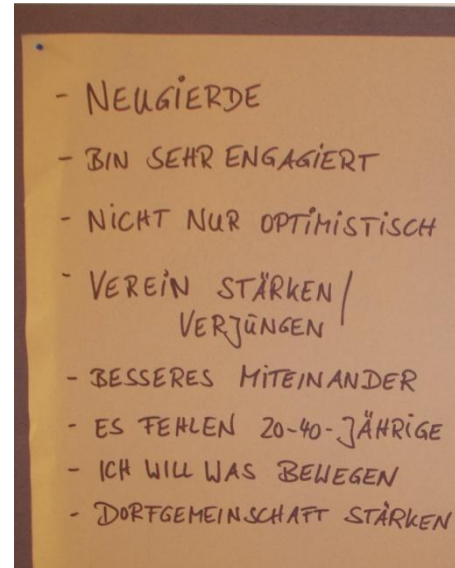 - NEUGiERDE
- BIN SEHR ENGAGiERT
- NiCHT NUR OPTiMiSTiSCH
- VEREiN STÄRKEN /
VERJÜNGEN
- BESSERES MiTEiNANDER
- ES FEHLEN 20-40-JÄHRiGE
- ICH WILL WAS BEWEGEN
- DORFGEMEiNSCHAFT STÄRKEN